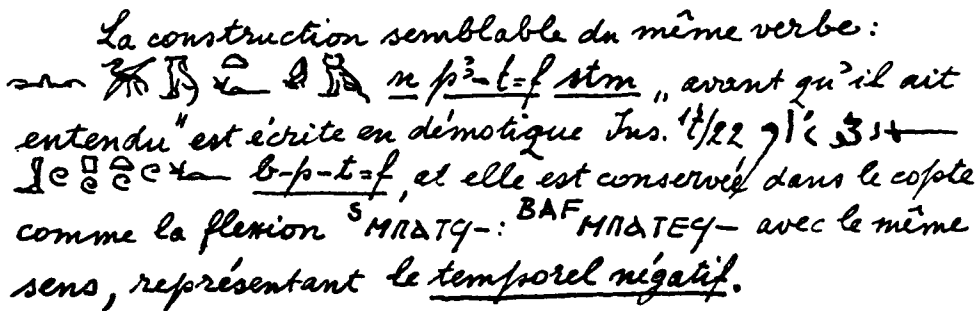 La construction semblable du même verbe:
n pꜣ-t=f stm „avant qu'il ait
entendu" est écrite en démotique Ins. 17/22
b-p-t=f, et elle est conservée dans le copte
comme la flexion ᔆⲘⲠⲀⲦϤ-: ᴮᴬꟳⲘⲠⲀⲦⲈϤ- avec le même
sens, représentant le temporel négatif.